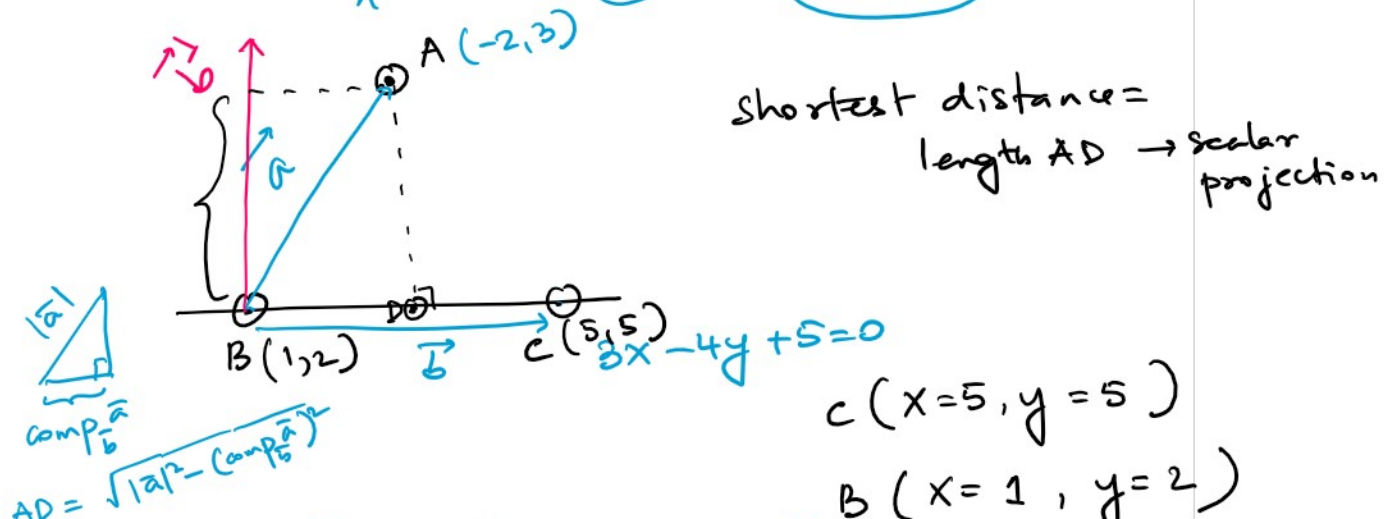 A (-2,3)
shortest distance =
length AD → scalar
projection
a
D
B (1,2)
b⃗
C (5,5)
3x - 4y + 5 = 0
|a̅|
comp_b̅ a̅
AD = √(|a̅|² - (comp_b̅ a̅)²)
C (x=5, y=5)
B (x=1, y=2)